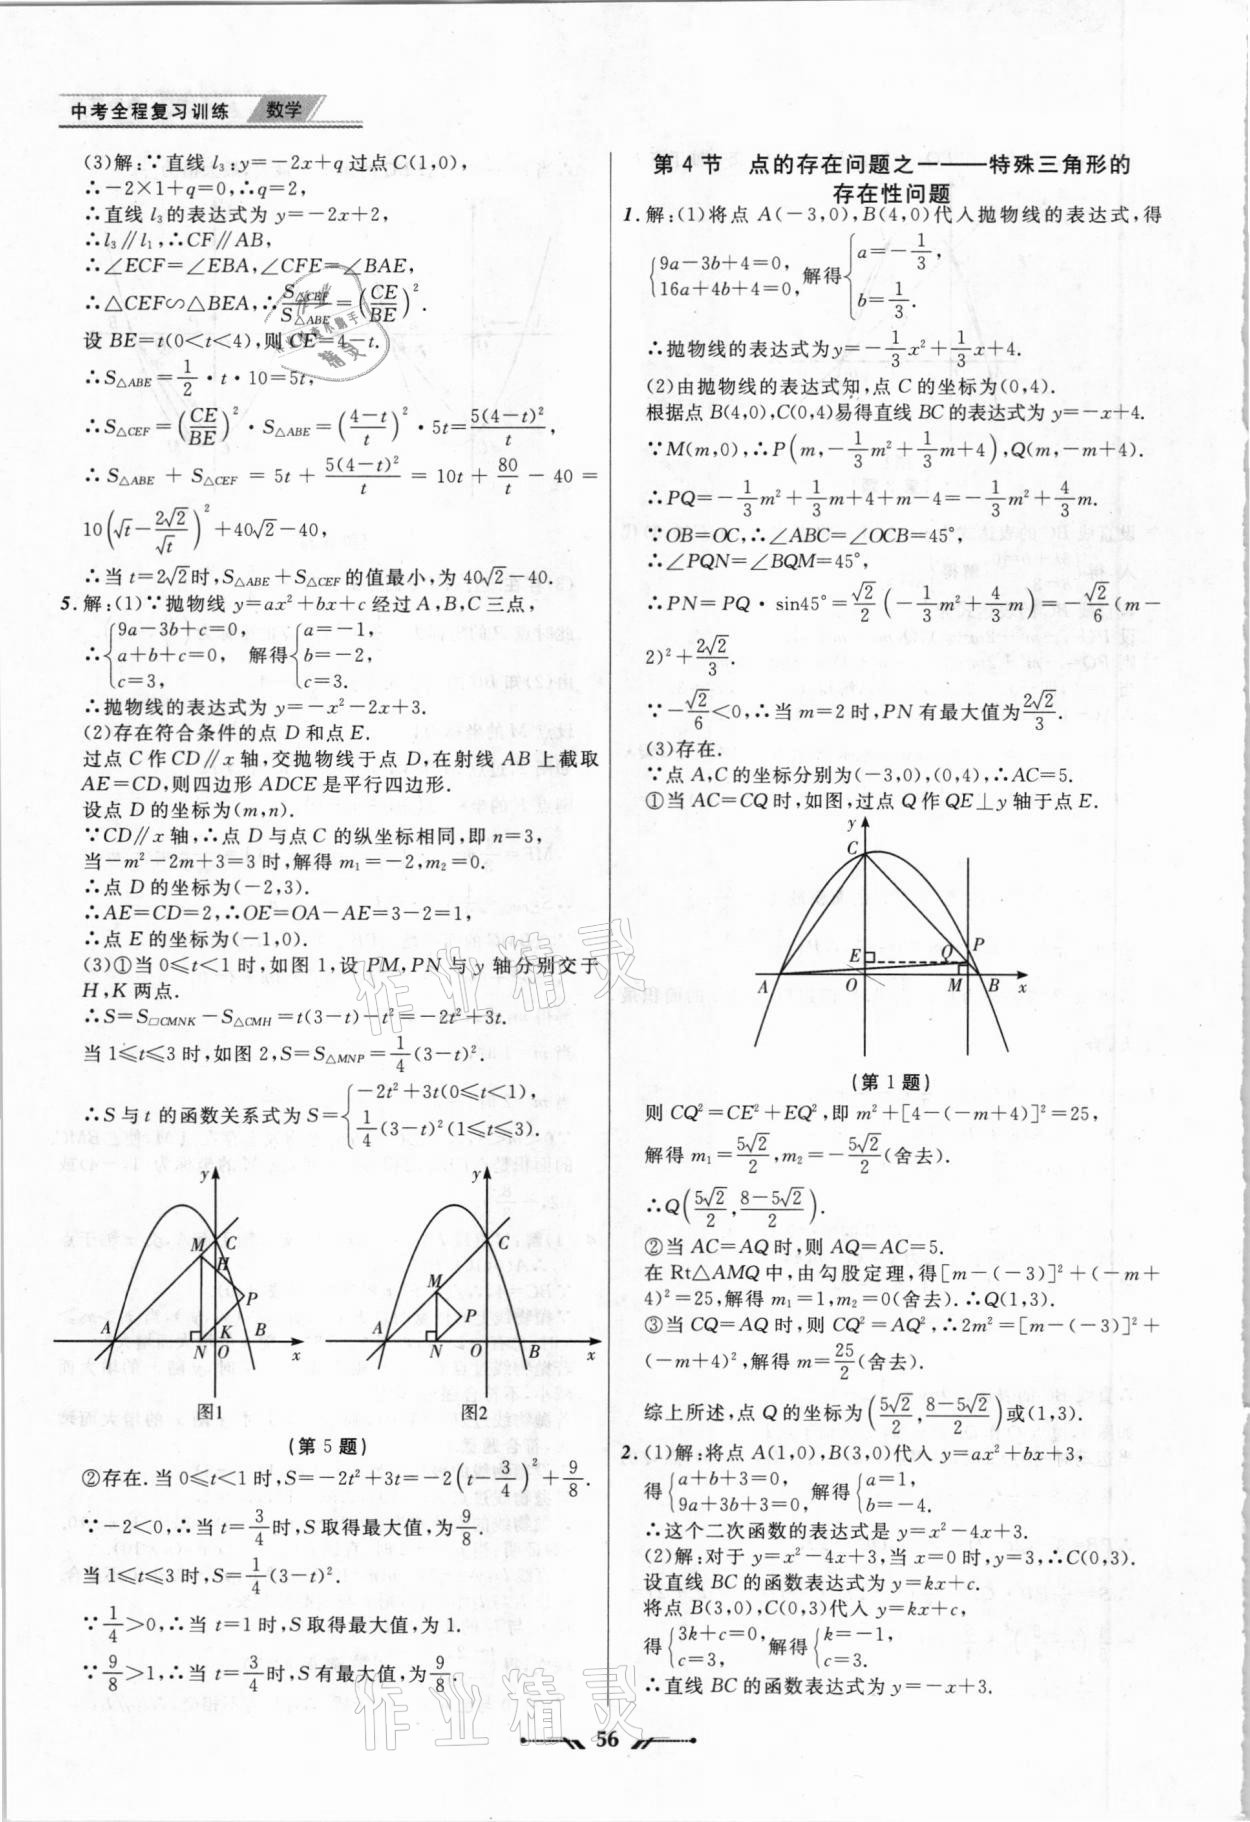 中考全程复习训练 数学
(3)解:∵直线 l₃:y=-2x+q 过点 C(1,0),
∴-2×1+q=0,∴q=2,
∴直线 l₃ 的表达式为 y=-2x+2,
∴l₃∥l₁,∴CF∥AB,
∴∠ECF=∠EBA,∠CFE=∠BAE,
∴△CEF∽△BEA,∴S△CEF/S△ABE=(CE/BE)².
设 BE=t(0<t<4),则 CE=4-t.
∴S△ABE=1/2·t·10=5t,
∴S△CEF=(CE/BE)²·S△ABE=((4-t)/t)²·5t=5(4-t)²/t,
∴S△ABE+S△CEF=5t+5(4-t)²/t=10t+80/t-40=
10(√t-2√2/√t)²+40√2-40,
∴当 t=2√2时,S△ABE+S△CEF 的值最小,为 40√2-40.
5. 解:(1)∵抛物线 y=ax²+bx+c 经过 A,B,C 三点,
∴{9a-3b+c=0, a+b+c=0, c=3, 解得{a=-1, b=-2, c=3.
∴抛物线的表达式为 y=-x²-2x+3.
(2)存在符合条件的点 D 和点 E.
过点 C 作 CD∥x 轴,交抛物线于点 D,在射线 AB 上截取
AE=CD,则四边形 ADCE 是平行四边形.
设点 D 的坐标为(m,n).
∵CD∥x 轴,∴点 D 与点 C 的纵坐标相同,即 n=3,
当-m²-2m+3=3 时,解得 m₁=-2,m₂=0.
∴点 D 的坐标为(-2,3).
∴AE=CD=2,∴OE=OA-AE=3-2=1,
∴点 E 的坐标为(-1,0).
(3)①当 0≤t<1 时,如图 1,设 PM,PN 与 y 轴分别交于
H,K 两点.
∴S=S□CMNK-S△CMH=t(3-t)-t²=-2t²+3t.
当 1≤t≤3 时,如图 2,S=S△MNP=1/4(3-t)².
∴S 与 t 的函数关系式为 S={-2t²+3t(0≤t<1), 1/4(3-t)²(1≤t≤3).
y M C H P A N K O B x
图1
y C M P A N O B x
图2
(第 5 题)
②存在.当 0≤t<1 时,S=-2t²+3t=-2(t-3/4)²+9/8.
∵-2<0,∴当 t=3/4时,S 取得最大值,为9/8.
当 1≤t≤3 时,S=1/4(3-t)².
∵1/4>0,∴当 t=1 时,S 取得最大值,为 1.
∵9/8>1,∴当 t=3/4时,S 有最大值,为9/8.
第 4 节 点的存在问题之一——特殊三角形的
存在性问题
1. 解:(1)将点 A(-3,0),B(4,0)代人抛物线的表达式,得
{9a-3b+4=0, 16a+4b+4=0, 解得{a=-1/3, b=1/3.
∴抛物线的表达式为y=-1/3x²+1/3x+4.
(2)由抛物线的表达式知,点 C 的坐标为(0,4).
根据点 B(4,0),C(0,4)易得直线 BC 的表达式为 y=-x+4.
∵M(m,0),∴P(m,-1/3m²+1/3m+4),Q(m,-m+4).
∴PQ=-1/3m²+1/3m+4+m-4=-1/3m²+4/3m.
∵OB=OC,∴∠ABC=∠OCB=45°,
∴∠PQN=∠BQM=45°,
∴PN=PQ·sin45°=√2/2(-1/3m²+4/3m)=-√2/6(m-
2)²+2√2/3.
∵-√2/6<0,∴当 m=2 时,PN 有最大值为2√2/3.
(3)存在.
∵点 A,C 的坐标分别为(-3,0),(0,4),∴AC=5.
①当 AC=CQ 时,如图,过点 Q 作 QE⊥y 轴于点 E.
y C E Q P A O M B x
(第 1 题)
则 CQ²=CE²+EQ²,即 m²+[4-(-m+4)]²=25,
解得 m₁=5√2/2,m₂=-5√2/2(舍去).
∴Q(5√2/2,(8-5√2)/2).
②当 AC=AQ 时,则 AQ=AC=5.
在 Rt△AMQ 中,由勾股定理,得[m-(-3)]²+(-m+
4)²=25,解得 m₁=1,m₂=0(舍去).∴Q(1,3).
③当 CQ=AQ 时,则 CQ²=AQ²,∴2m²=[m-(-3)]²+
(-m+4)²,解得 m=25/2(舍去).
综上所述,点 Q 的坐标为(5√2/2,(8-5√2)/2)或(1,3).
2. (1)解:将点 A(1,0),B(3,0)代人 y=ax²+bx+3,
得{a+b+3=0, 9a+3b+3=0, 解得{a=1, b=-4.
∴这个二次函数的表达式是 y=x²-4x+3.
(2)解:对于 y=x²-4x+3,当 x=0 时,y=3,∴C(0,3).
设直线 BC 的函数表达式为 y=kx+c.
将点 B(3,0),C(0,3)代人 y=kx+c,
得{3k+c=0, c=3, 解得{k=-1, c=3,
∴直线 BC 的函数表达式为 y=-x+3.
56
作业精灵
作业精灵